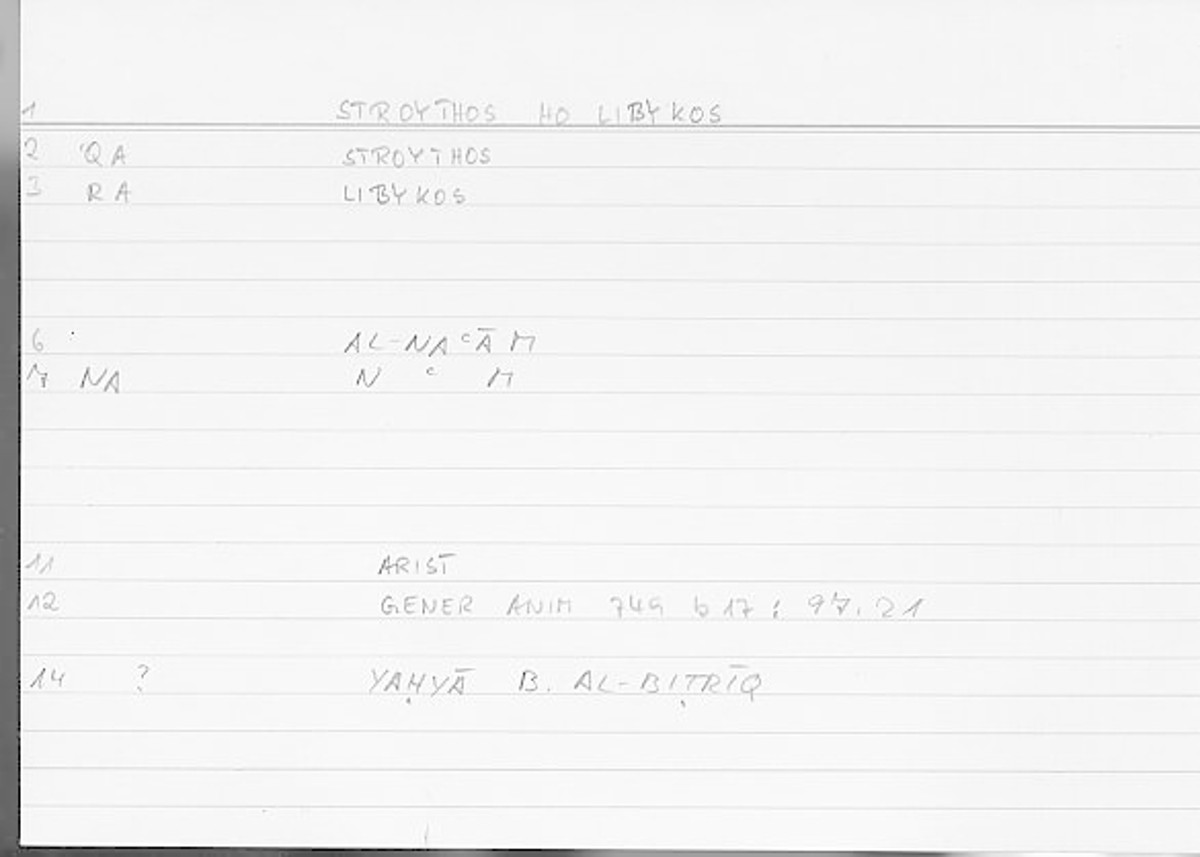 1 STROYTHOS HO LIBYKOS
2 QA STROYTHOS
3 RA LIBYKOS
6 AL-NAʿĀM
7 NA N ʿ M
11 ARIST
12 GENER ANIM 749 b 17 ; 97.21
14 ? YAḤYĀ B. AL-BIṬRĪQ